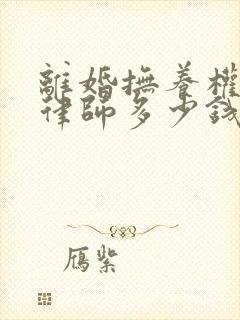 離婚撫養權
律師多少錢
雁紫